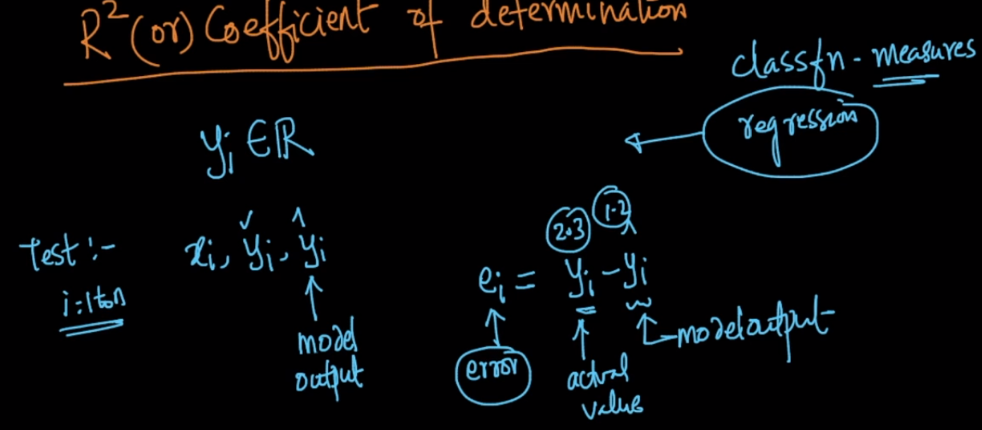 R² (or) Coefficient of determination
classfn - measures
regression
yᵢ ∈ ℝ
Test :- xᵢ, yᵢ, ŷᵢ
i:1 to n
model output
2.3 1.2
eᵢ = yᵢ - ŷᵢ
error
actual value
model output